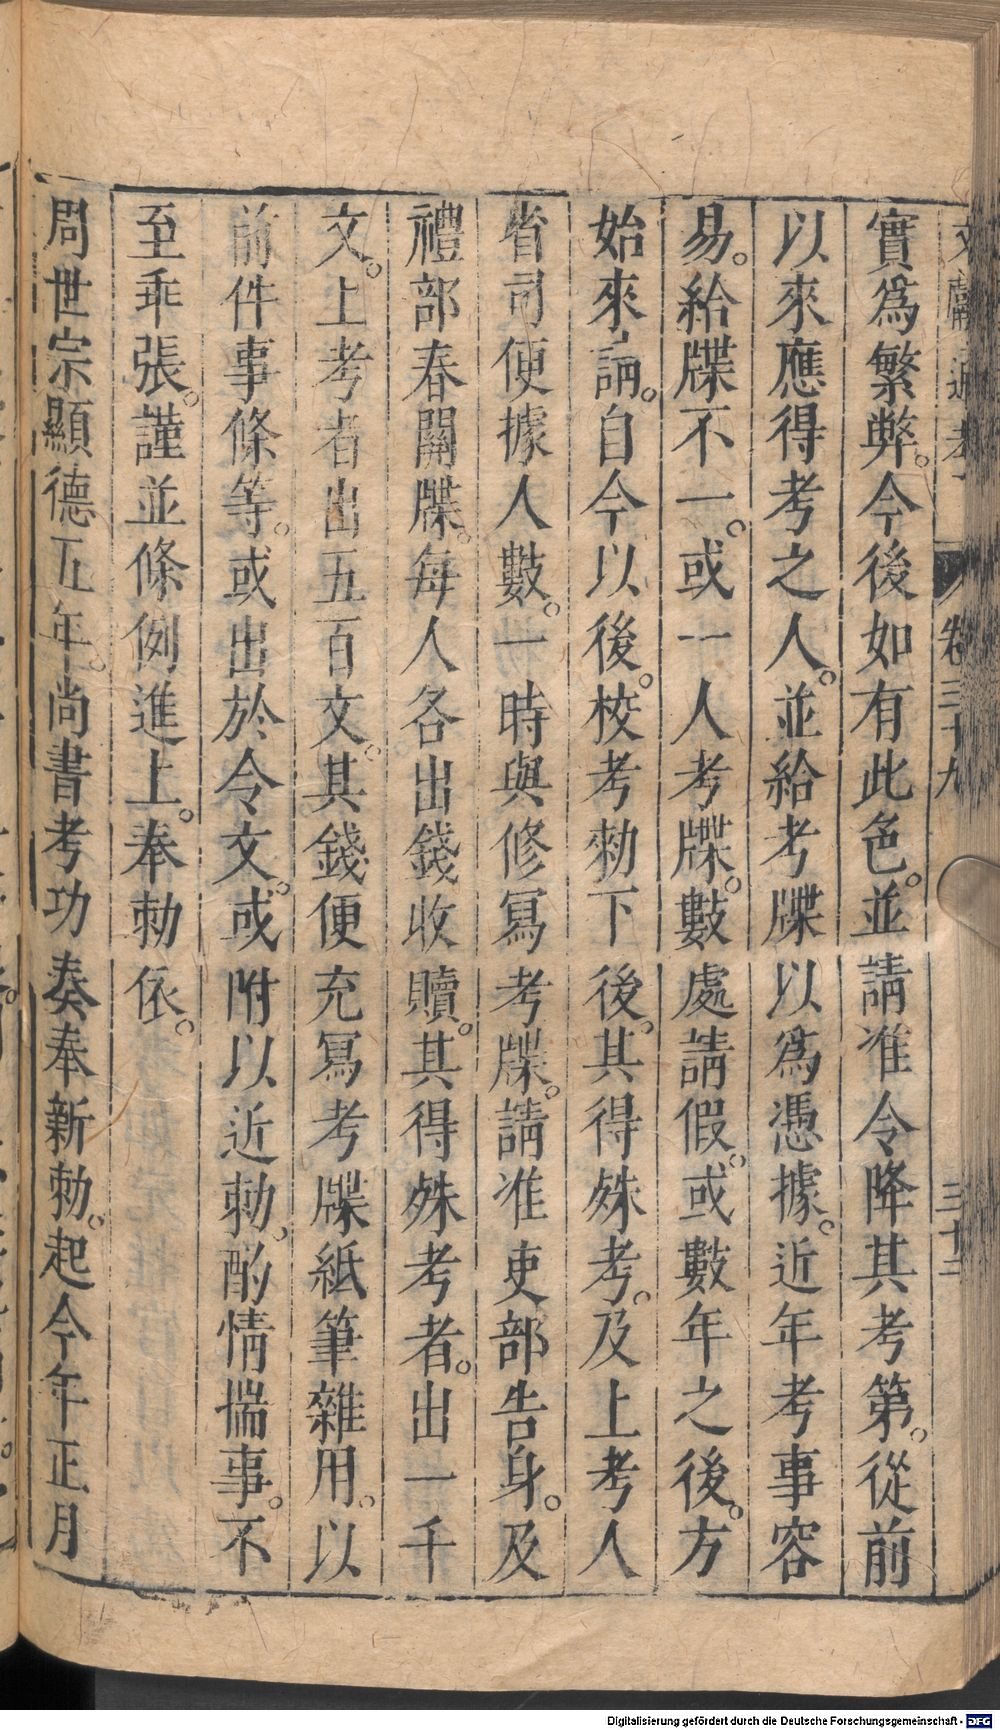 文獻通考
卷三十九
三十三
實爲繁弊。今後如有此色。並請准令降其考第。從前
以來應得考之人。並給考牒以爲憑據。近年考事容
易。給牒不一。或一人考牒。數處請假。或數年之後。方
始來請。自今以後。校考勑下後。其得殊考。及上考人
省司便據人數。一時與修冩考牒。請准吏部告身。及
禮部春關牒。每人各出錢收贖。其得殊考者。出一千
文。上考者出五百文。其錢便充冩考牒紙筆雜用。以
前件事條等。或出於令文。或附以近勅、酌情揣事。不
至乖張。謹並條例進上。奉勅依。
周世宗顯德五年。尚書考功奏奉新勅。起今年正月
Digitalisierung gefördert durch die Deutsche Forschungsgemeinschaft - DFG